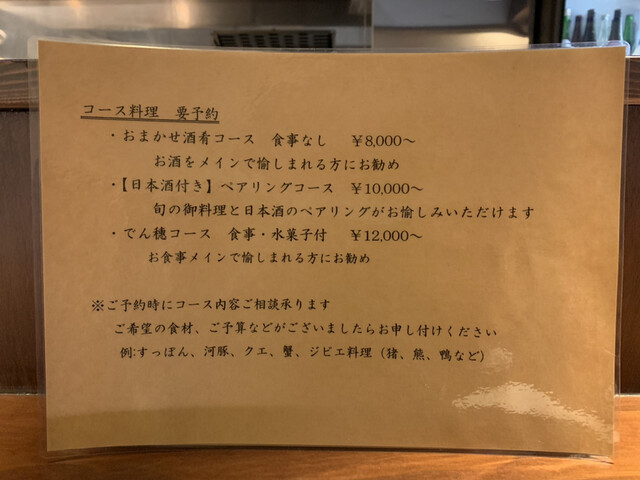 コース料理　要予約
・おまかせ酒肴コース　食事なし　￥8,000～
お酒をメインで愉しまれる方にお勧め
・【日本酒付き】ペアリングコース　￥10,000～
旬の御料理と日本酒のペアリングがお愉しみいただけます
・でん穂コース　食事・水菓子付　￥12,000～
お食事メインで愉しまれる方にお勧め
※ご予約時にコース内容ご相談承ります
ご希望の食材、ご予算などがございましたらお申し付けください
例:すっぽん、河豚、クエ、蟹、ジビエ料理（猪、熊、鴨など）